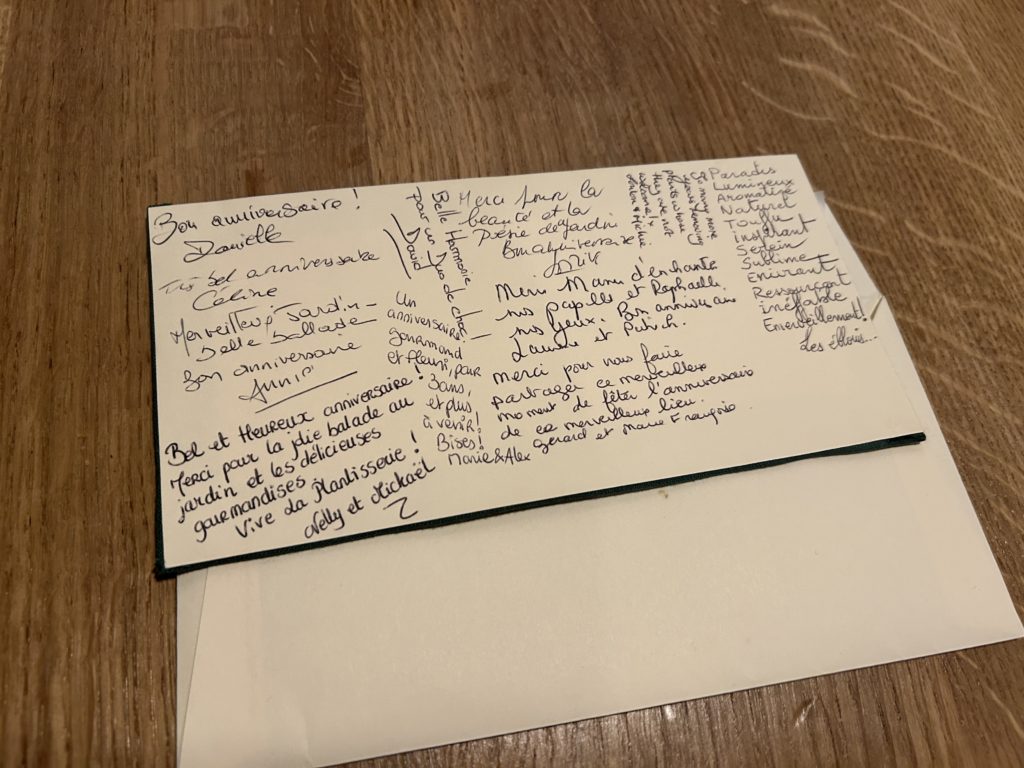 Bon anniversaire !
Danielle
Très bel anniversaire
Céline
Merveilleux Jardin
belle ballade
Bon anniversaire
Annie
Bel et Heureux anniversaire !
Merci pour la jolie balade au
jardin et les délicieuses
gourmandises
Vive La Plantisserie !
Nelly et Mickaël
Belle Harmonie
Pour un Duo de choc
David
Un
anniversaire
gourmand
et fleuri, pour
3ans,
et plus
à venir !
Bises !
Marie & Alex
Merci pour la
beauté et la
Poésie de jardin
Bon anniversaire.
Merci Manu d'enchanter
nos papilles et Raphaelle
nos yeux. Bon anniversaire
Laurie et
merci pour nous faire
partager ce merveilleux
moment de fêter l'anniversaire
de ce merveilleux lieu.
Gérard et Marie Françoise
So many more
years removing
plants where
they are not
welcome !
Paradis
Lumineux
Aromatisé
Naturel
Touffu
Inspirant
Serein
Sublime
Enivrant
Ressourçant
Ineffable
Emerveillement !
Les éblouis...